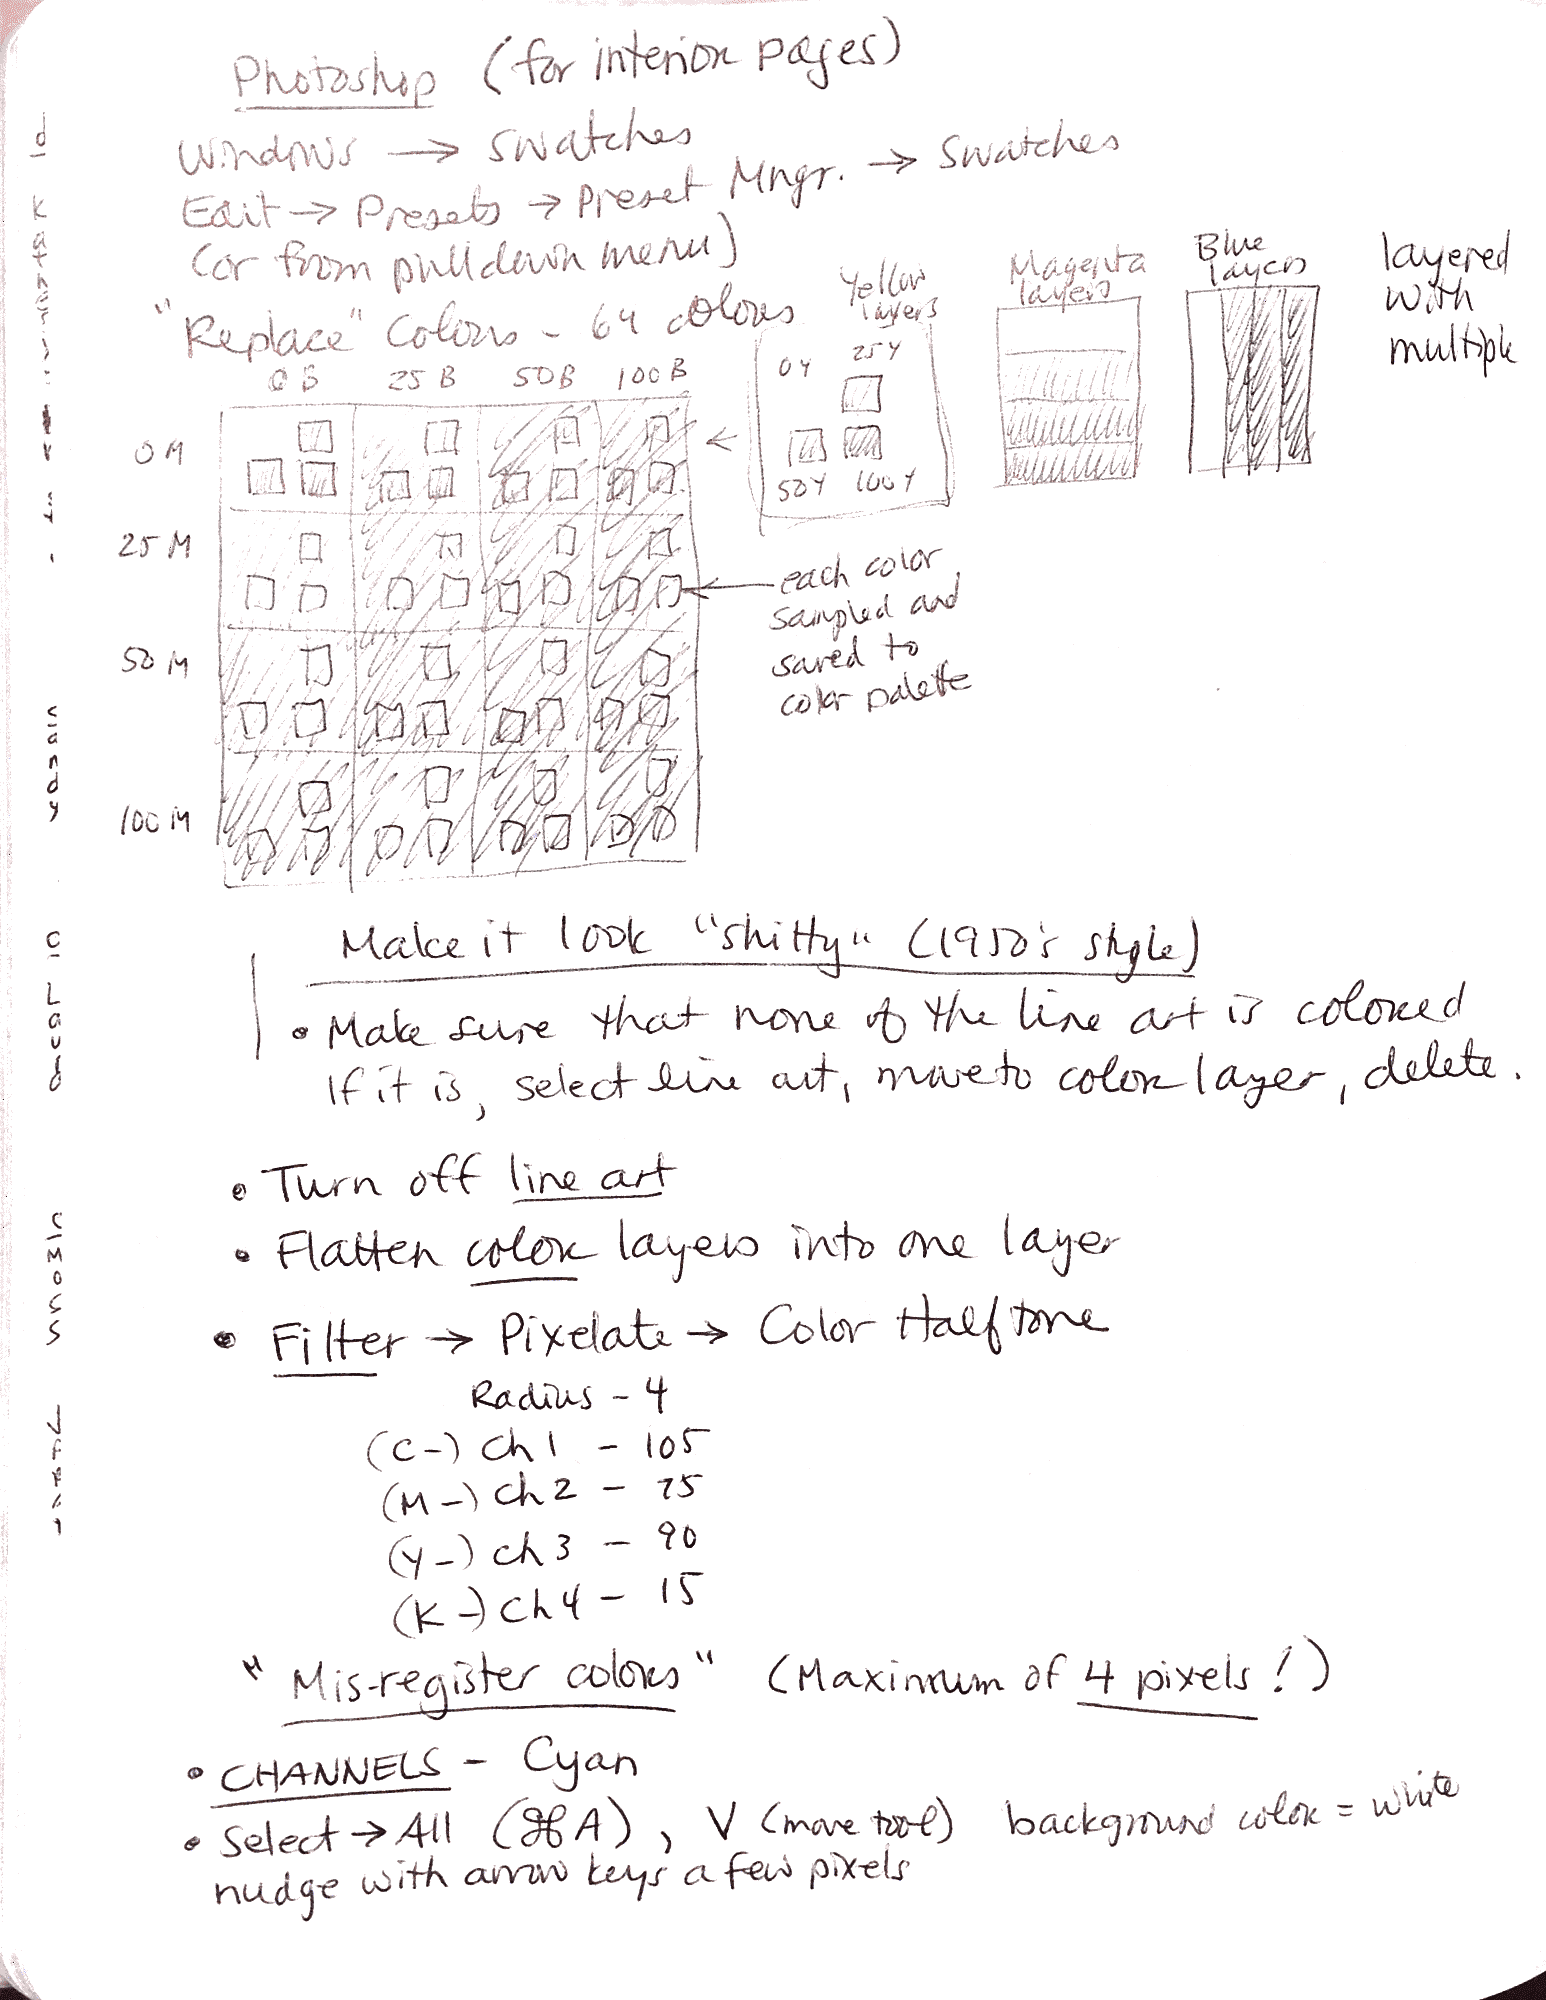 Photoshop (for interior pages)
Windows → Swatches
Edit → Presets → Preset Mngr. → Swatches
(or from pulldown menu)
"Replace" Colors - 64 colors
0 B 25 B 50 B 100 B
0 M
25 M
50 M
100 M
Yellow
layers
0 Y 25 Y
50 Y 100 Y
Magenta
layers
Blue
layers
layered
with
multiple
each color
sampled and
saved to
color palette
Make it look "shitty" (1950's style)
• Make sure that none of the line art is colored
If it is, select line art, move to color layer, delete.
• Turn off line art
• Flatten color layers into one layer
• Filter → Pixelate → Color Halftone
Radius - 4
(C-) Ch 1 - 105
(M-) Ch 2 - 75
(Y-) Ch 3 - 90
(K-) Ch 4 - 15
"Mis-register colors" (Maximum of 4 pixels!)
• CHANNELS - Cyan
• Select → All (⌘A), V (move tool) background color = white
nudge with arrow keys a few pixels